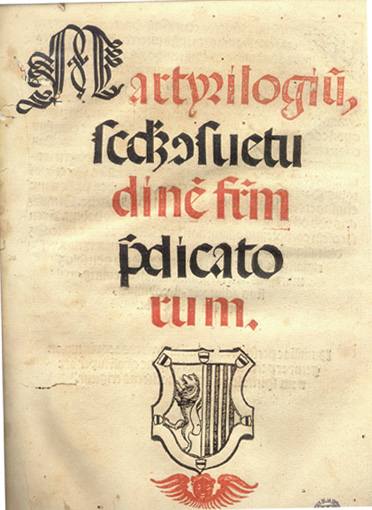 Martyrilogiũ,
ſcdꝫ ↄſuetu
dinẽ fr̃m
p̃dicato
rum.